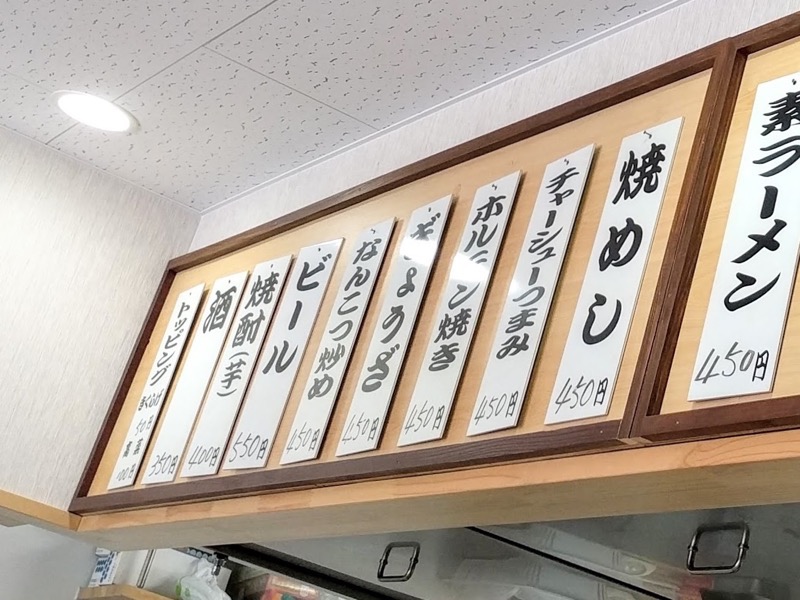 素ラーメン
450円
焼めし
450円
チャーシューつまみ
450円
ホルモン焼き
450円
ぎょうざ
450円
なんこつ炒め
450円
ビール
550円
焼酎(芋)
400円
酒
350円
トッピング
きくらげ
50円
高菜
100円